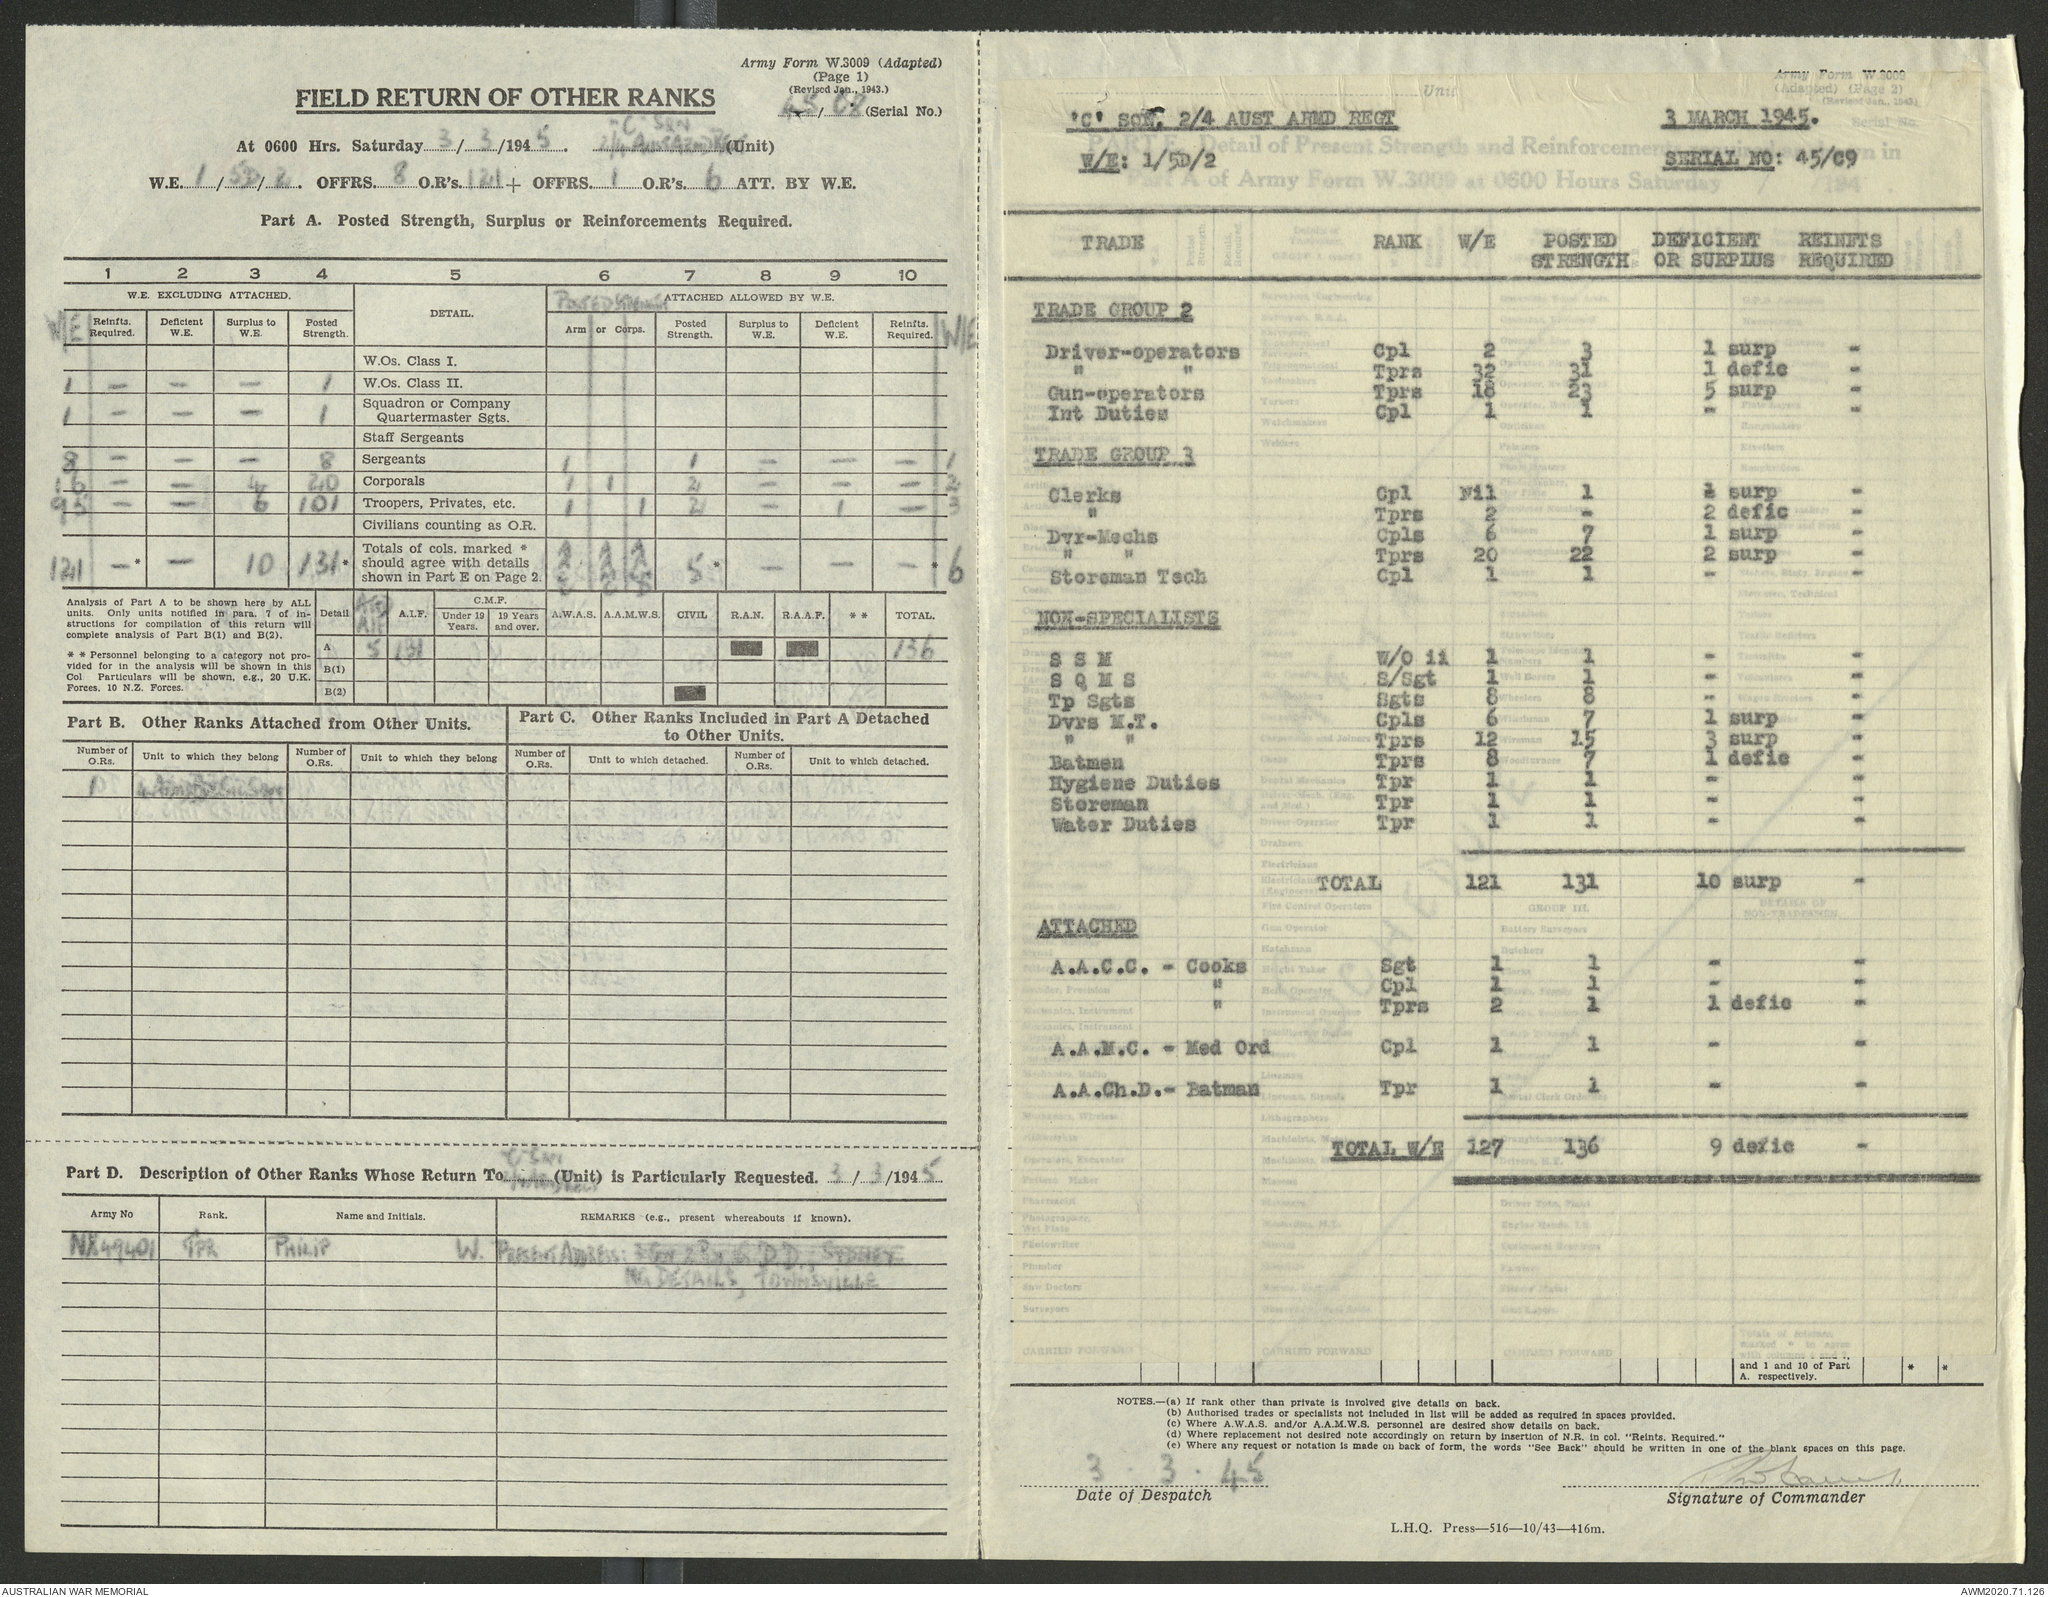 Army Form W.3009 (Adapted)
(Page 1)
(Revised Jan., 1943.)
FIELD RETURN OF OTHER RANKS
45/C9 (Serial No.)
At 0600 Hrs. Saturday 3/3/1945. 'C' SQN 2/4 AUST ARMD REGT (Unit)
W.E. 1/5D/2. OFFRS. 8 O.R's. 121 + OFFRS. 1 O.R's. 6 ATT. BY W.E.
Part A. Posted Strength, Surplus or Reinforcements Required.
1 2 3 4 5 6 7 8 9 10
W.E. EXCLUDING ATTACHED. DETAIL. POSTED STRENGTH ATTACHED ALLOWED BY W.E.
W/E Reinfts. Required. Deficient W.E. Surplus to W.E. Posted Strength. Arm or Corps. Posted Strength. Surplus to W.E. Deficient W.E. Reinfts. Required. W/E
W.Os. Class I.
1 — — — 1 W.Os. Class II.
1 — — — 1 Squadron or Company Quartermaster Sgts.
Staff Sergeants
8 — — — 8 Sergeants 1 1 — — — 1
16 — — 4 20 Corporals 1 1 2 — — — 2
95 — — 6 101 Troopers, Privates, etc. 1 1 2 — 1 — 3
Civilians counting as O.R.
121 —* — 10 131* Totals of cols. marked * should agree with details shown in Part E on Page 2. 5* — — —* 6
Analysis of Part A to be shown here by ALL units. Only units notified in para. 7 of instructions for compilation of this return will complete analysis of Part B(1) and B(2).
* * Personnel belonging to a category not provided for in the analysis will be shown in this Col Particulars will be shown, e.g., 20 U.K. Forces, 10 N.Z. Forces.
Detail ATTD AIF A.I.F. C.M.F. Under 19 Years. 19 Years and over. A.W.A.S. A.A.M.W.S. CIVIL R.A.N. R.A.A.F. * * TOTAL.
A 5 131 136
B(1)
B(2)
Part B. Other Ranks Attached from Other Units.
Part C. Other Ranks Included in Part A Detached to Other Units.
Number of O.Rs. Unit to which they belong Number of O.Rs. Unit to which they belong Number of O.Rs. Unit to which detached. Number of O.Rs. Unit to which detached.
Part D. Description of Other Ranks Whose Return To 'C' SQN (Unit) is Particularly Requested. 3/3/1945
Army No Rank. Name and Initials. REMARKS (e.g., present whereabouts if known).
NX49401 TPR PHILIP W. PRESENT ADDRESS: G.D.D., SYDNEY
DETAILS, TOWNSVILLE
Army Form W.3009
(Adapted) (Page 2)
(Revised Jan., 1943)
Unit
Serial No.
'C' SQN, 2/4 AUST ARMD REGT 3 MARCH 1945.
PART E. Detail of Present Strength and Reinforcements
W/E: 1/5D/2 SERIAL NO: 45/C9
Part A of Army Form W.3009 at 0600 Hours Saturday / /194 .
TRADE RANK W/E POSTED STRENGTH DEFICIENT OR SURPLUS REINFTS REQUIRED
TRADE GROUP 2
Driver-operators Cpl 2 3 1 surp -
" " Tprs 32 31 1 defic -
Gun-operators Tprs 18 23 5 surp -
Int Duties Cpl 1 1 - -
TRADE GROUP 3
Clerks Cpl Nil 1 1 surp -
" Tprs 2 - 2 defic -
Dvr-Mechs Cpls 6 7 1 surp -
" " Tprs 20 22 2 surp -
Storeman Tech Cpl 1 1 - -
NON-SPECIALISTS
S S M W/O ii 1 1 - -
S Q M S S/Sgt 1 1 - -
Tp Sgts Sgts 8 8 - -
Dvrs M.T. Cpls 6 7 1 surp -
" " Tprs 12 15 3 surp -
Batmen Tprs 8 7 1 defic -
Hygiene Duties Tpr 1 1 - -
Storeman Tpr 1 1 - -
Water Duties Tpr 1 1 - -
TOTAL 121 131 10 surp -
ATTACHED
A.A.C.C. - Cooks Sgt 1 1 - -
" Cpl 1 1 - -
" Tprs 2 1 1 defic -
A.A.M.C. - Med Ord Cpl 1 1 - -
A.A.Ch.D.- Batman Tpr 1 1 - -
TOTAL W/E 127 136 9 defic -
CARRIED FORWARD CARRIED FORWARD CARRIED FORWARD
Totals of columns marked * to agree with columns 4 and 7, and 1 and 10 of Part A. respectively. * *
NOTES.—(a) If rank other than private is involved give details on back.
(b) Authorised trades or specialists not included in list will be added as required in spaces provided.
(c) Where A.W.A.S. and/or A.A.M.W.S. personnel are desired show details on back.
(d) Where replacement not desired note accordingly on return by insertion of N.R. in col. "Reints. Required."
(e) Where any request or notation is made on back of form, the words "See Back" should be written in one of the blank spaces on this page.
3 . 3 . 45
Date of Despatch
Signature of Commander
L.H.Q. Press—516—10/43—416m.
AUSTRALIAN WAR MEMORIAL AWM2020.71.126